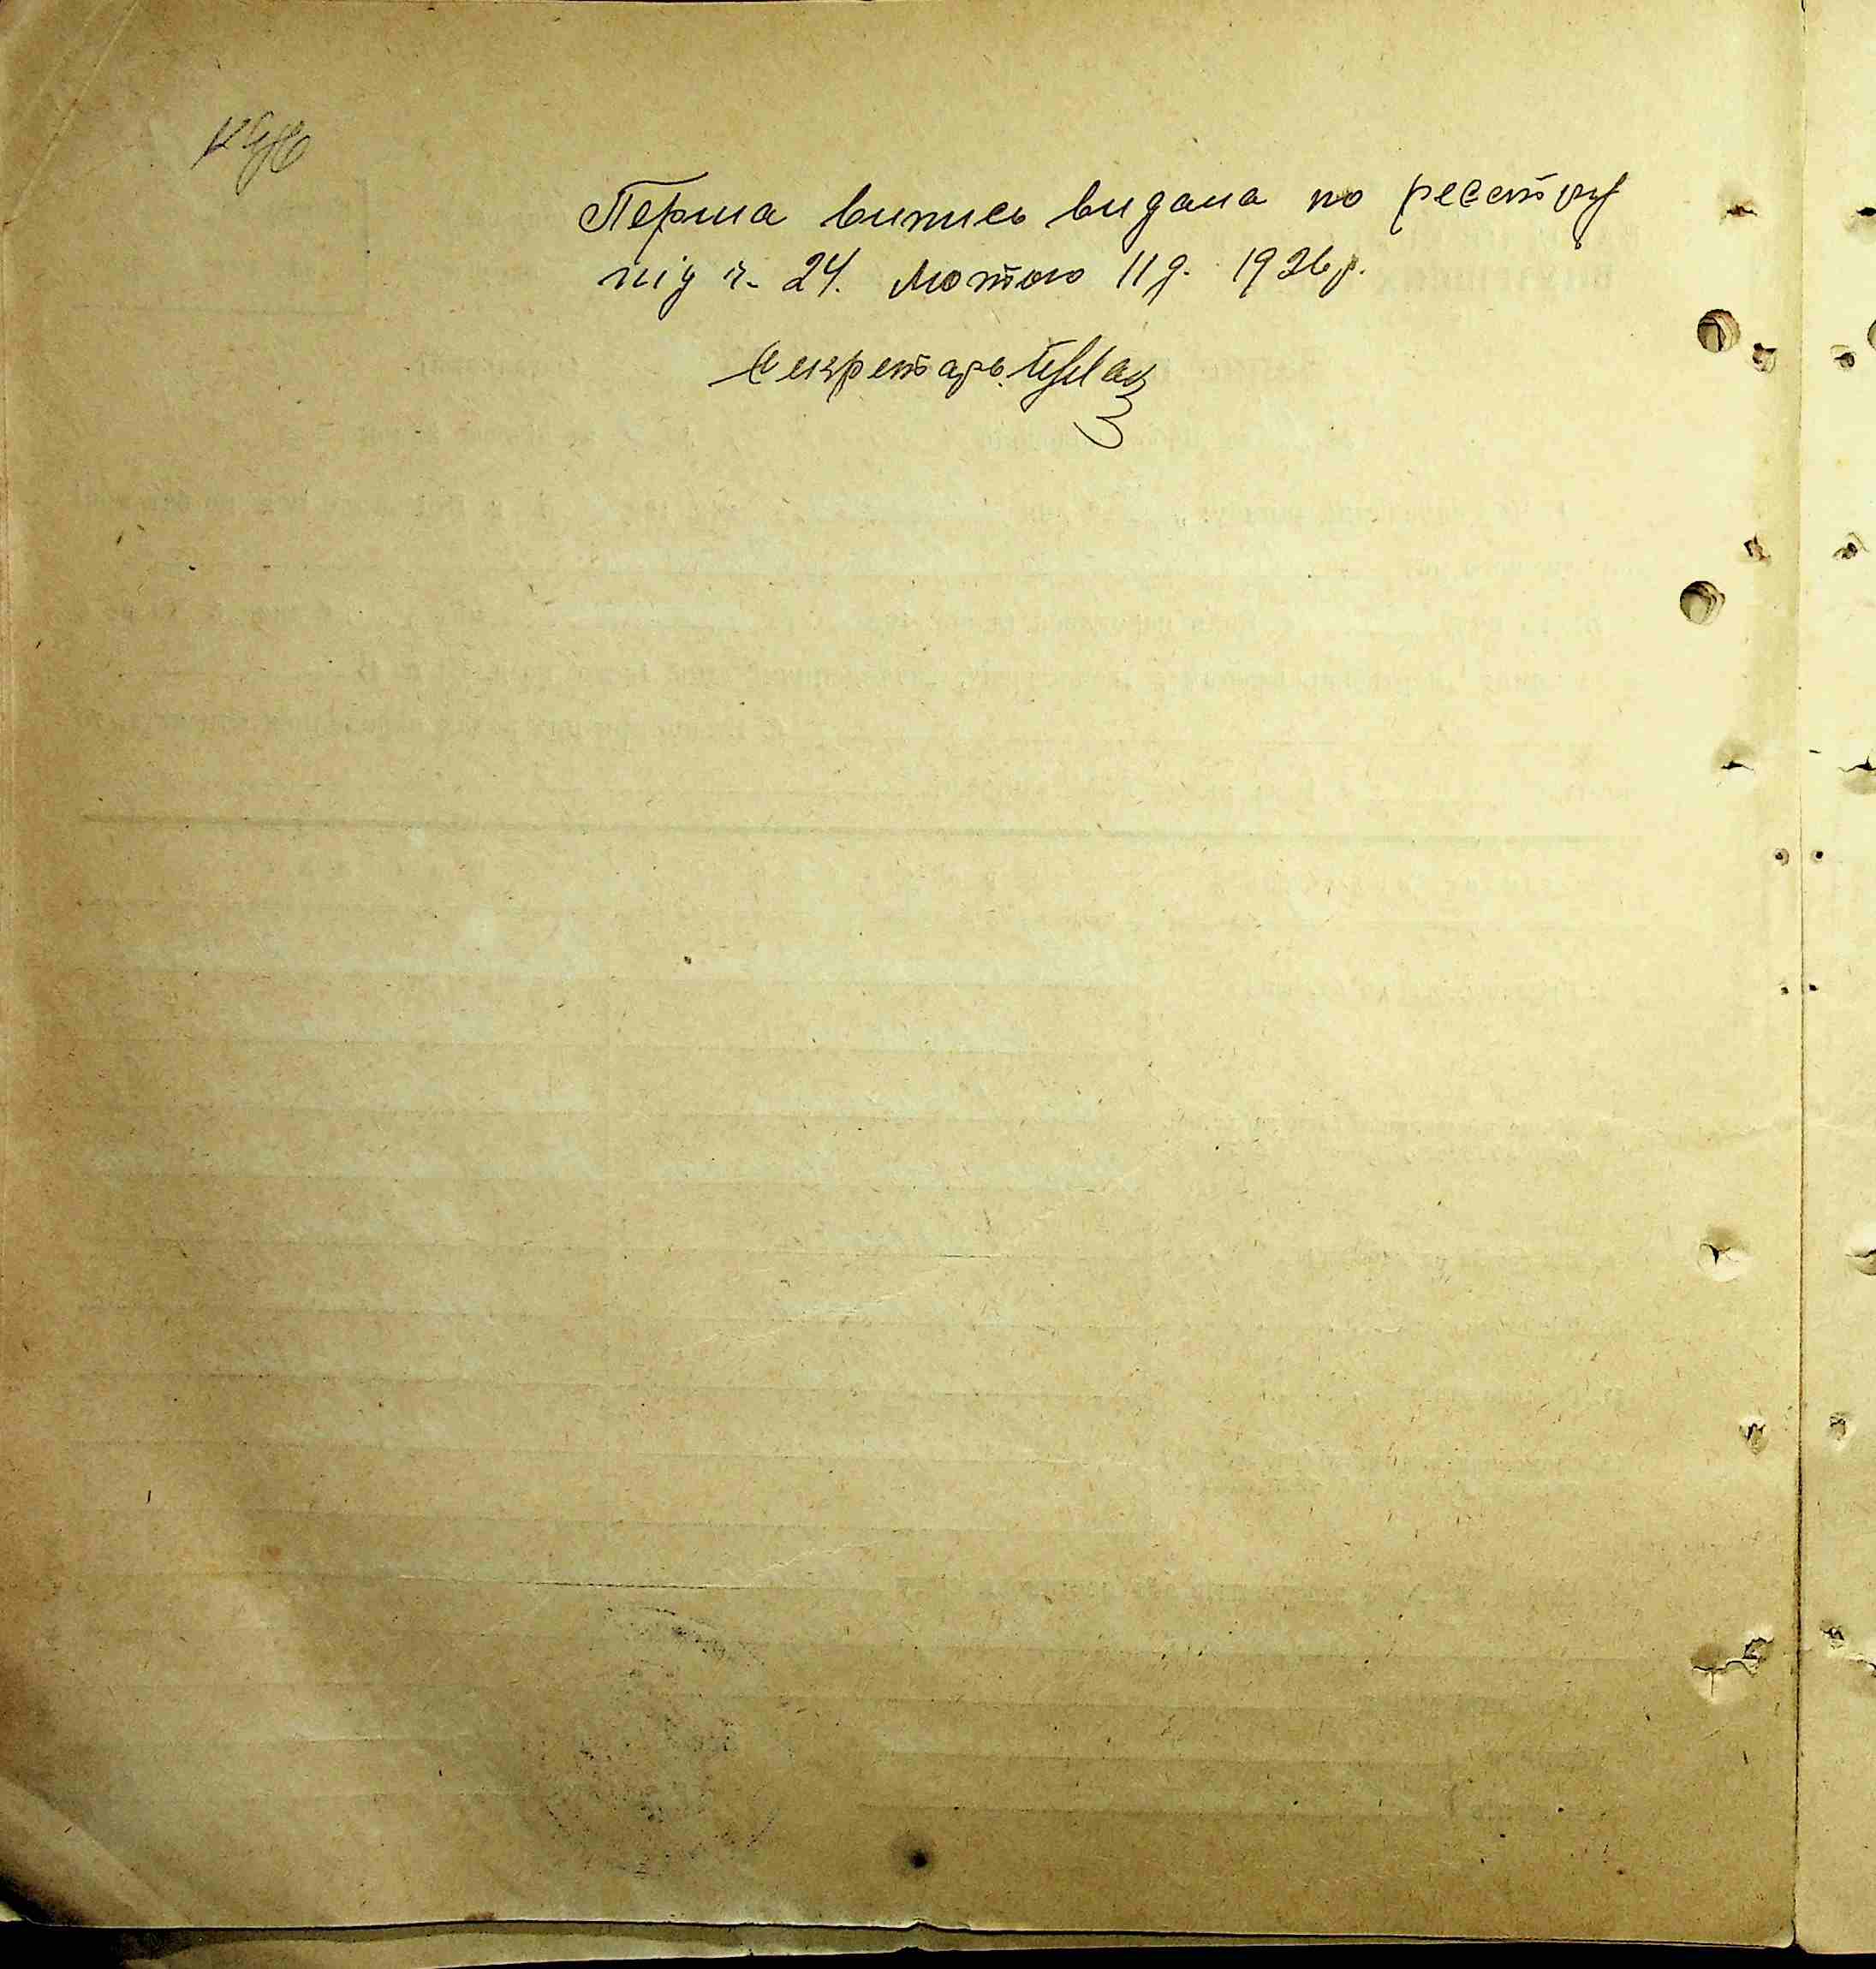 Перша випись видана по реестру
під ч. 24. Лютого 11 д. 1926 р.
Секретарь